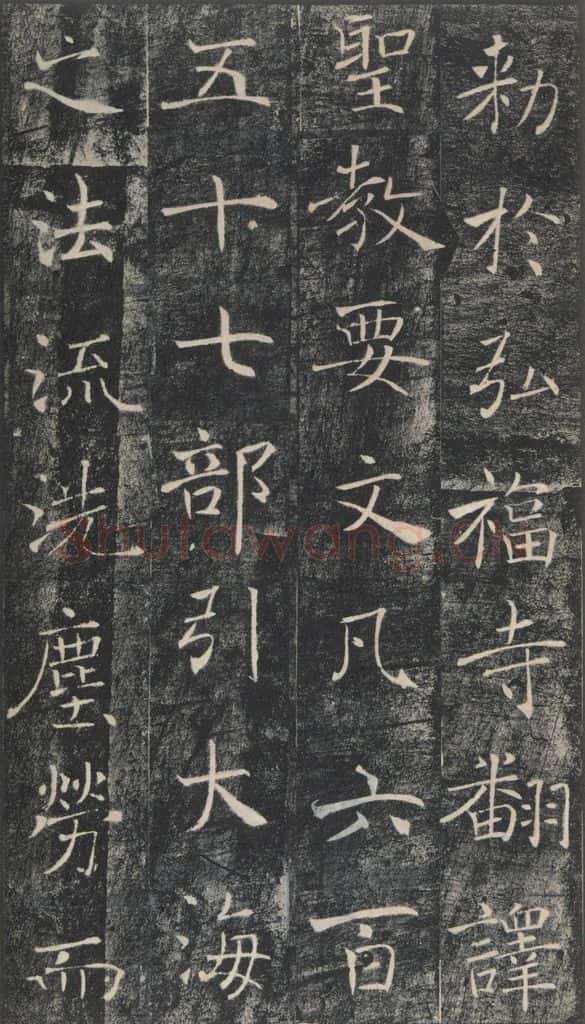 勑於弘福寺翻譯
聖教要文凡六百
五十七部引大海
之法流洗塵勞而
shufawang.cn